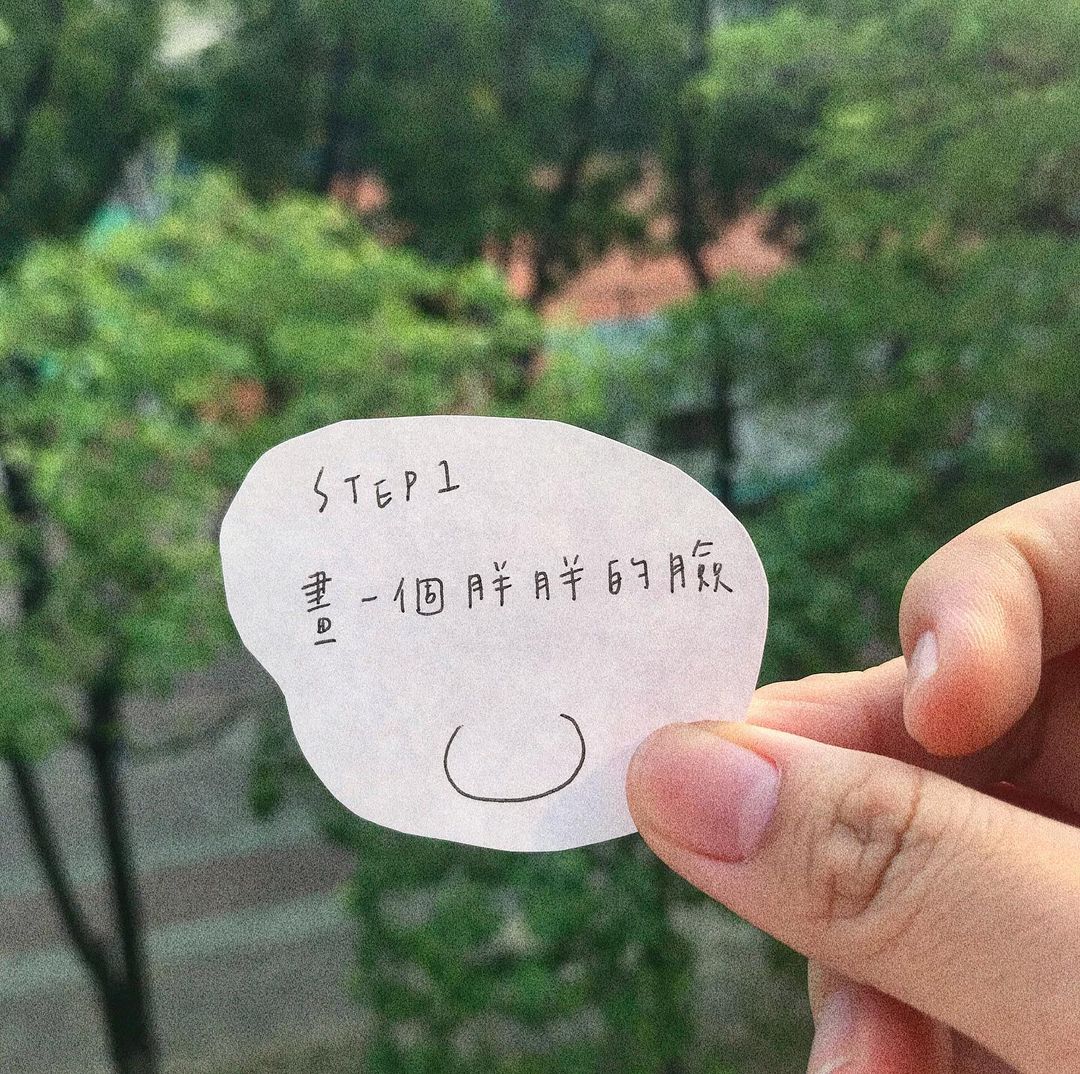 STEP1
畫一個胖胖的臉